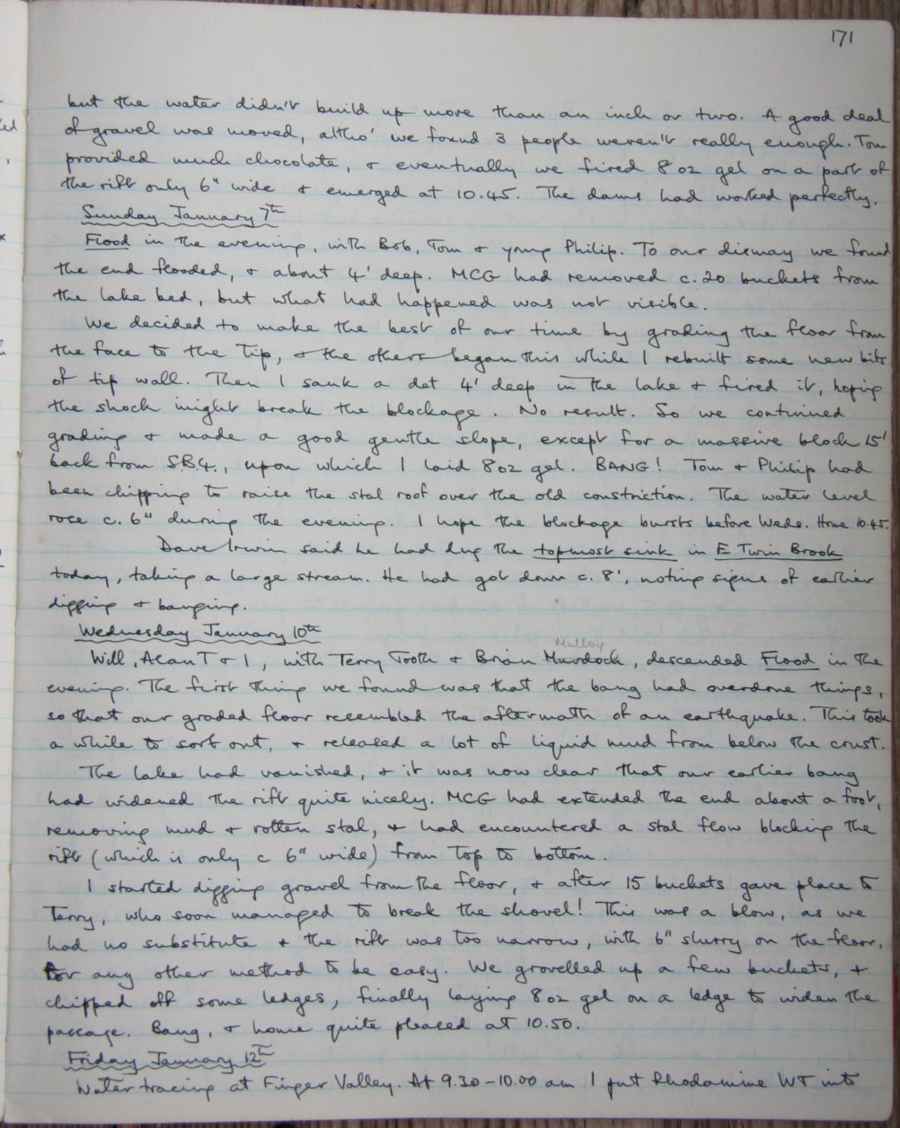 171
but the water didn't build up more than an inch or two. A good deal
of gravel was moved, altho' we found 3 people weren't really enough. Tom
provided much chocolate, & eventually we fired 8 oz gel on a part of
the rift only 6" wide & emerged at 10.45. The dams had worked perfectly.
Sunday January 7th
Flood in the evening, with Bob, Tom & young Philip. To our dismay we found
the end flooded, & about 4' deep. MCG had removed c.20 buckets from
the lake bed, but what had happened was not visible.
We decided to make the best of our time by grading the floor from
the face to the tip, & the others began this while I rebuilt some new bits
of tip wall. Then I sank a det 4' deep in the lake & fired it, hoping
the shock might break the blockage. No result. So we continued
grading & made a good gentle slope, except for a massive block 15'
back from SB4., upon which I laid 8 oz gel. BANG! Tom & Philip had
been chipping to raise the stal roof over the old constriction. The water level
rose c. 6" during the evening. I hope the blockage bursts before Weds. Home 10.45.
Dave Irwin said he had dug the topmost sink in E Twin Brook
today, taking a large stream. He had got down c. 8', noting signs of earlier
digging & banging.
Wednesday January 10th
Malloy
Will, Alan T & I, with Terry Tooth & Brian Murdock, descended Flood in the
evening. The first thing we found was that the bang had overdone things,
so that our graded floor resembled the aftermath of an earthquake. This took
a while to sort out, & released a lot of liquid mud from below the crust.
The lake had vanished, & it was now clear that our earlier bang
had widened the rift quite nicely. MCG had extended the end about a foot,
removing mud & rotten stal, & had encountered a stal flow blocking the
rift (which is only c 6" wide) from top to bottom.
I started digging gravel from the floor, & after 15 buckets gave place to
Terry, who soon managed to break the shovel! This was a blow, as we
had no substitute & the rift was too narrow, with 6" slurry on the floor,
for any other method to be easy. We grovelled up a few buckets, &
chipped off some ledges, finally laying 8 oz gel on a ledge to widen the
passage. Bang, & home quite pleased at 10.50.
Friday January 12th
Water tracing at Finger Valley. At 9.30-10.00 am I put Rhodamine WT into